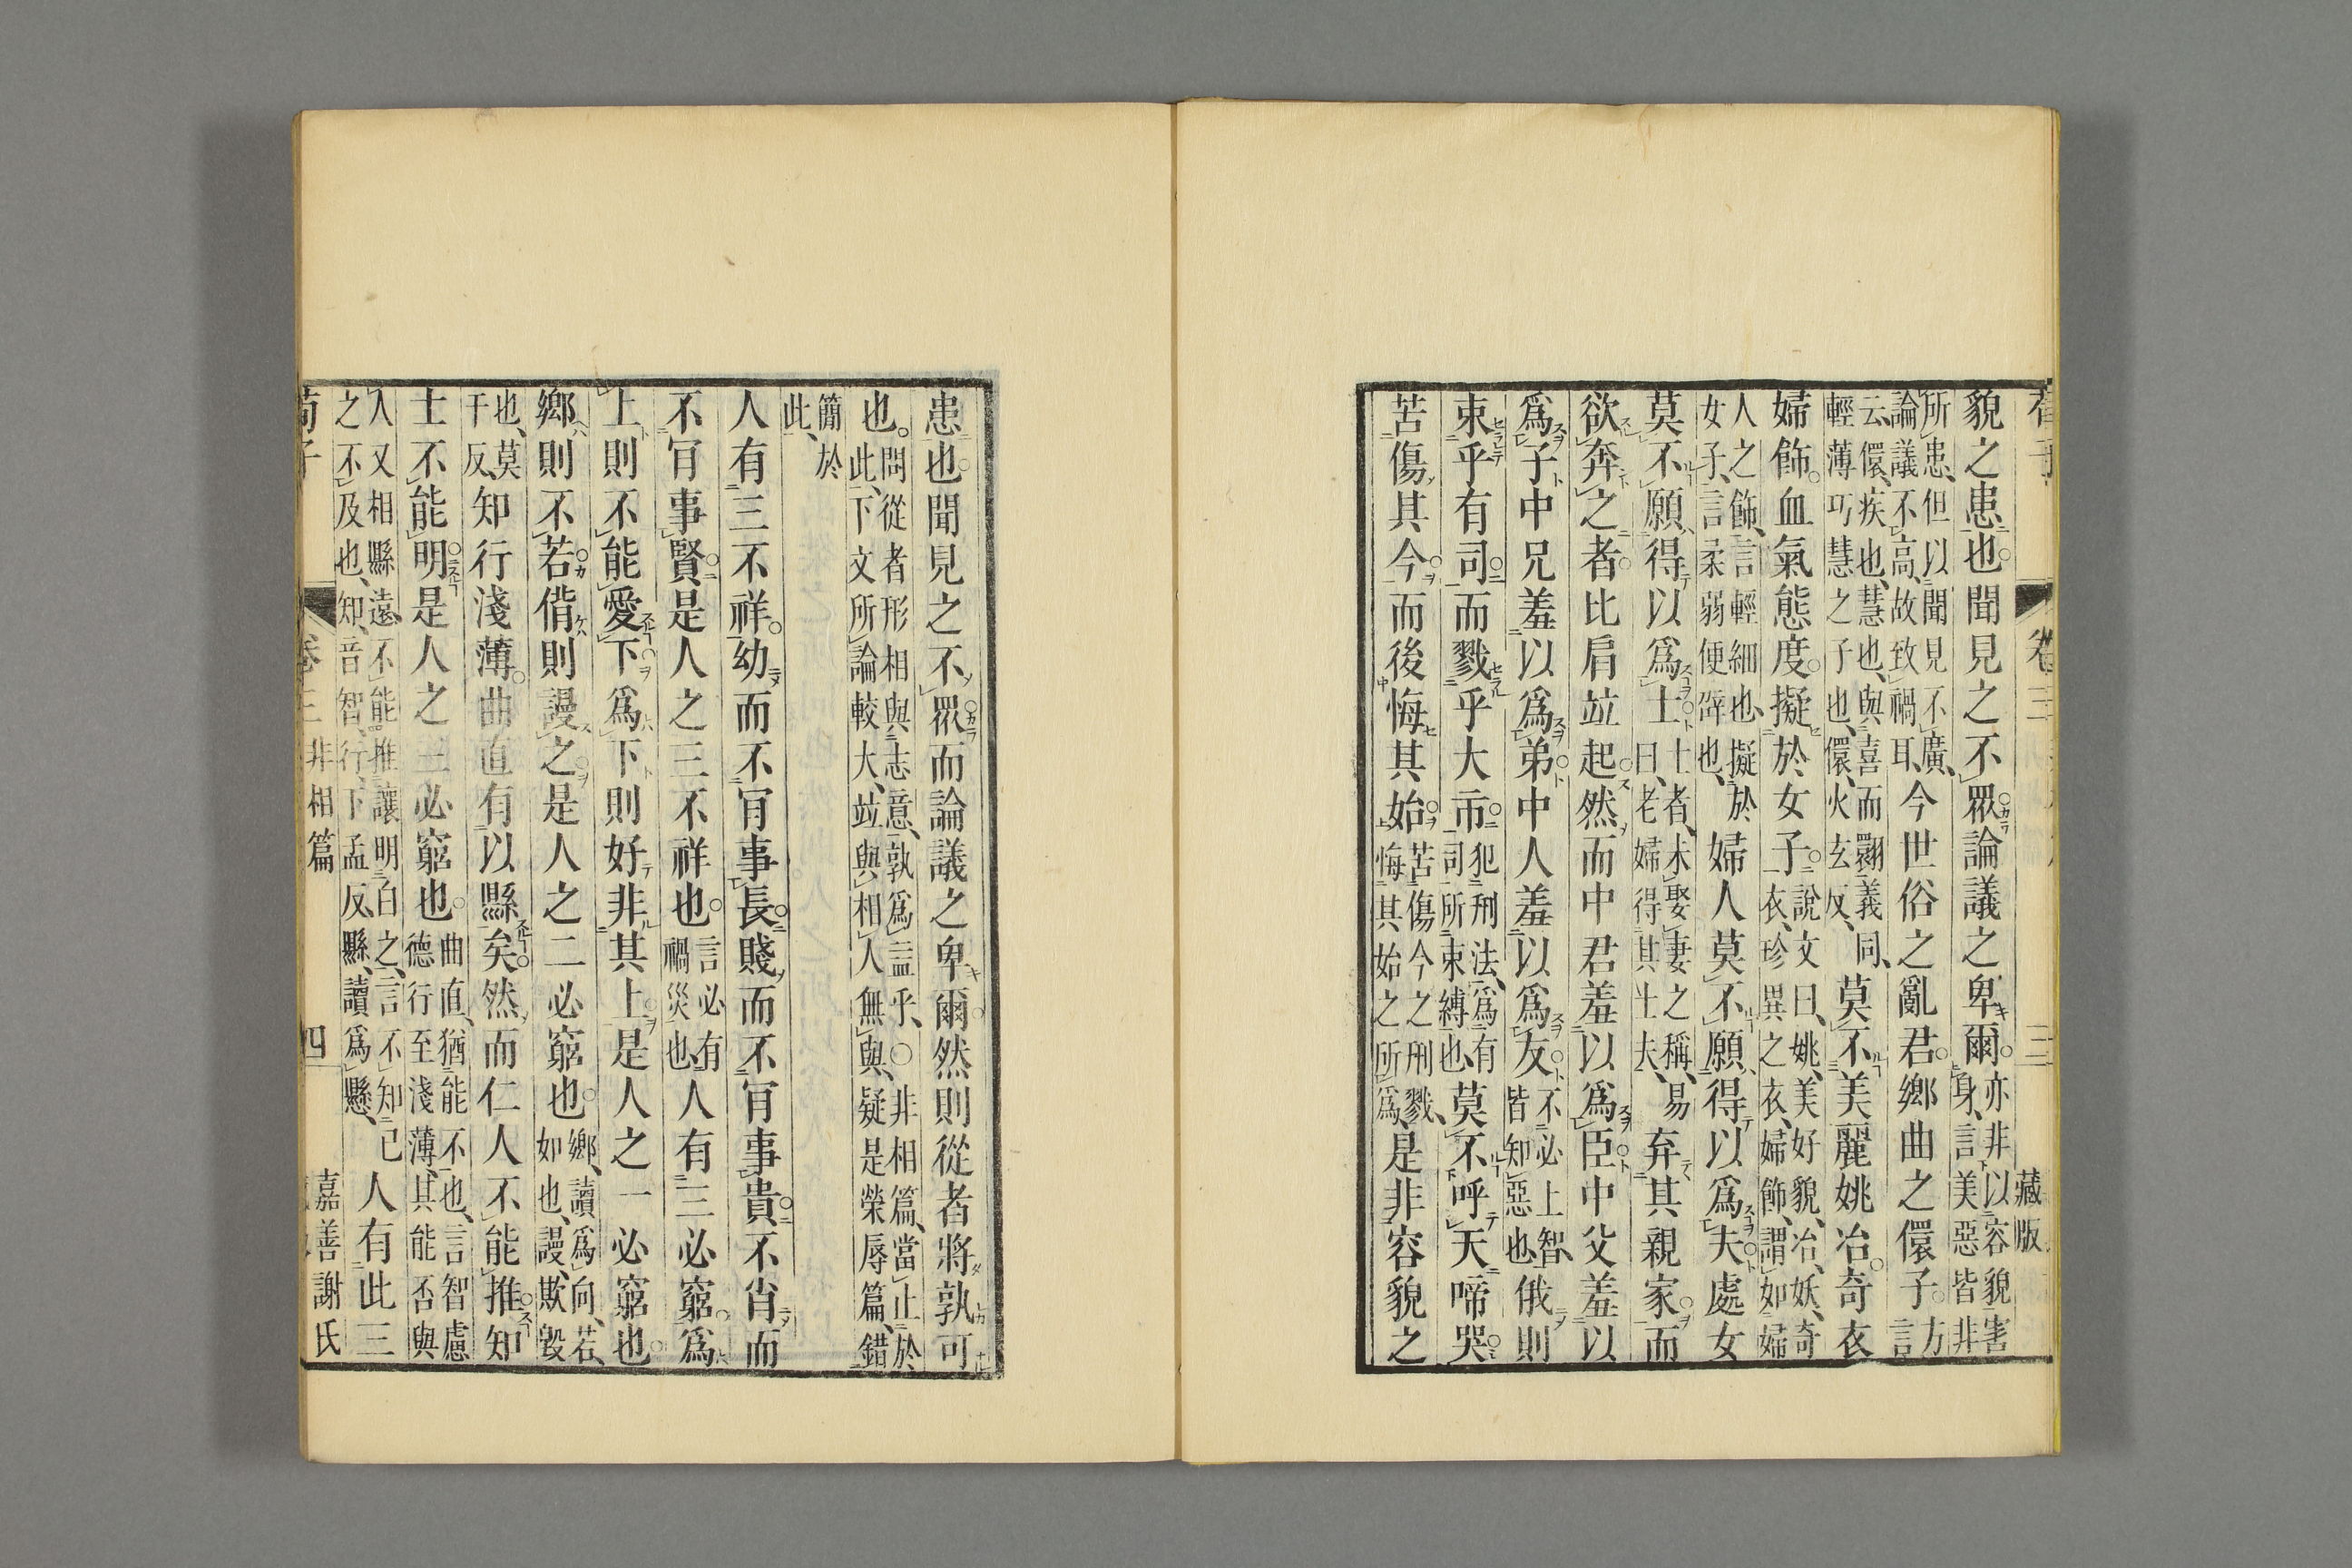 藏版
貌之患也聞見之不眾論議之卑爾亦非以容貌害身言美惡皆非
所患但以聞見不廣論議不高故致禍耳今世俗之亂君鄉曲之儇子方言
云儇疾也慧也與喜而翾義同輕薄巧慧之子也儇火玄反莫不美麗姚冶奇衣
婦飾血氣態度擬於女子說文曰姚美好貌冶妖奇衣珍異之衣婦飾謂如婦
人之飾言輕細也擬於女子言柔弱便辟也婦人莫不願得以爲夫處女
莫不願得以爲士士者未娶妻之稱易曰老婦得其士夫弃其親家而
欲奔之者比肩竝起然而中君羞以爲臣中父羞以
爲子中兄羞以爲弟中人羞以爲友不必上智皆知惡也俄則
束乎有司而戮乎大市犯刑法爲有司所束縛也莫不呼天啼哭
苦傷其今而後悔其始苦傷今之刑戮悔其始之所爲是非容貌之
患也聞見之不眾而論議之卑爾然則從者將孰可
也問從者形相與志意孰爲益乎○非相篇當止於此下文所論較大竝與相人無與疑是榮辱篇錯
簡於此
人有三不祥幼而不肯事長賤而不肯事貴不肖而
不肯事賢是人之三不祥也言必有禍災也人有三必窮爲
上則不能愛下爲下則好非其上是人之一必窮也
鄉則不若偝則謾之是人之二必窮也鄉讀爲向若如也謾欺毀
也莫干反知行淺薄曲直有以縣矣然而仁人不能推知
士不能明是人之三必窮也曲直猶能不也言智慮德行至淺薄其能否與
人又相縣遠不能推讓明白之言不知己之不及也知音智行下孟反縣讀爲懸人有此三
卷三 非相篇 四 嘉善謝氏